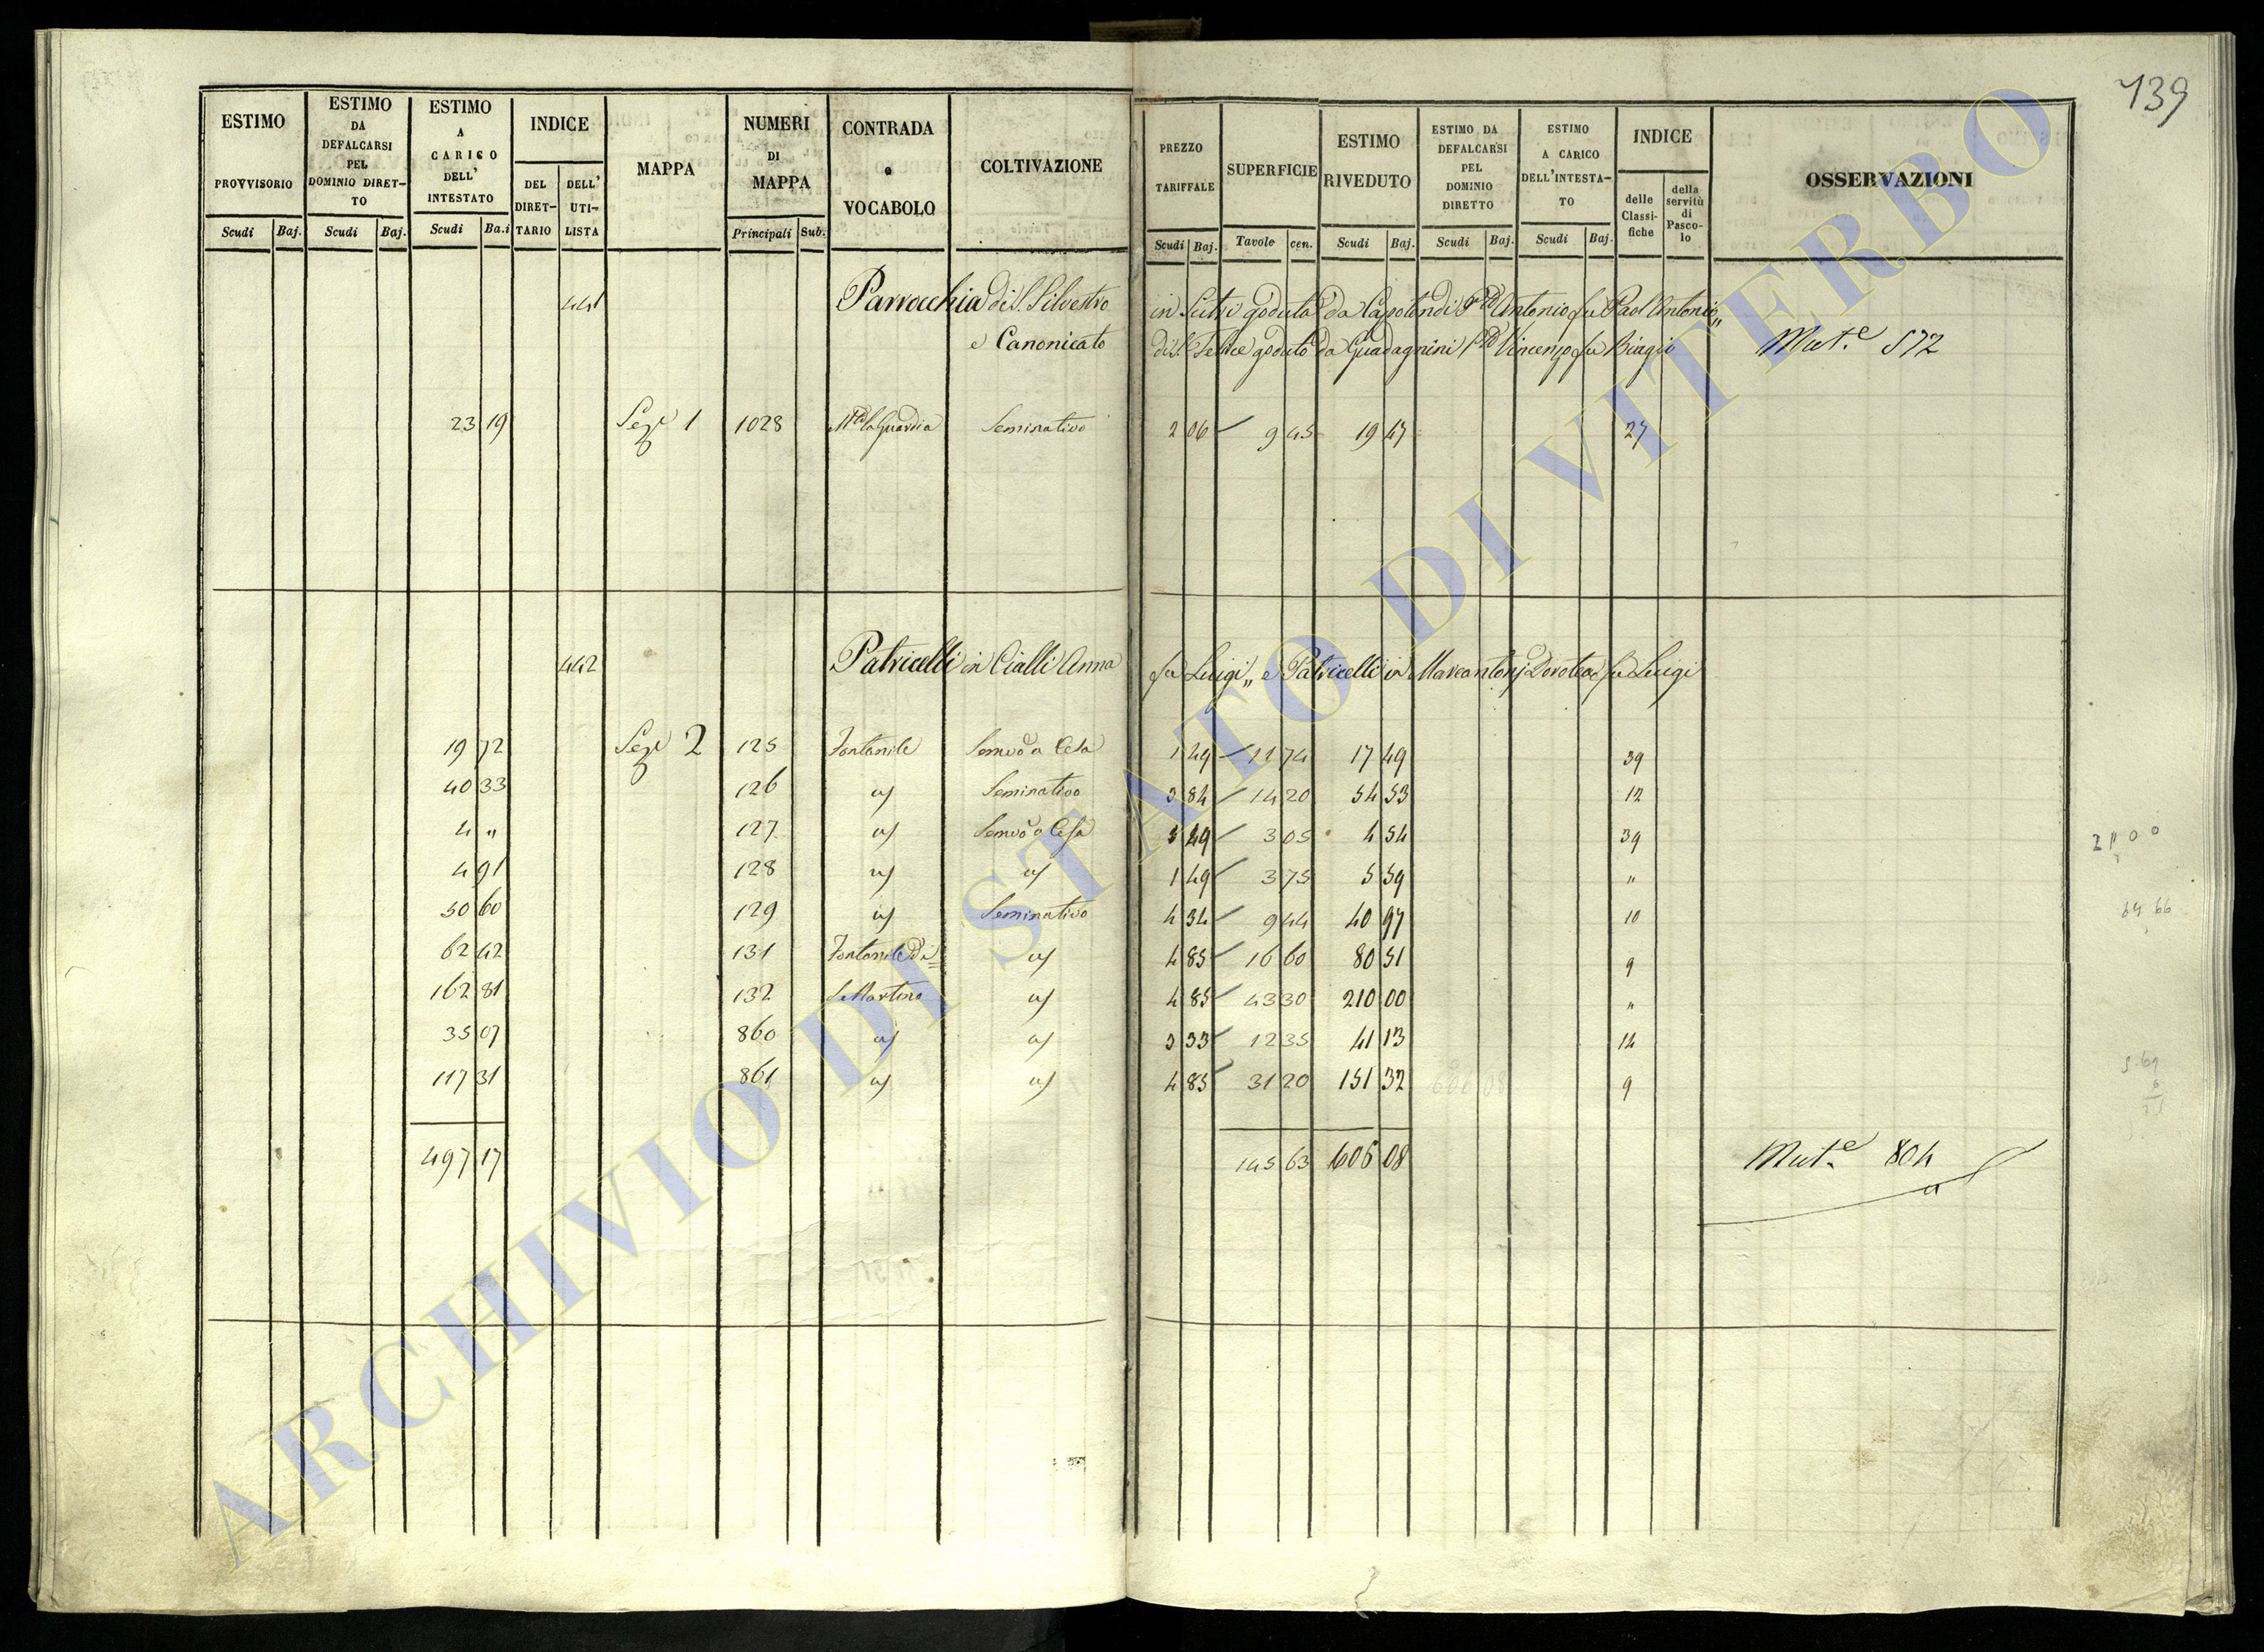 139
ESTIMO PROVVISORIO Scudi Baj.
ESTIMO DA DEFALCARSI PEL DOMINIO DIRET-TO Scudi Baj.
ESTIMO A CARICO DELL' INTESTATO Scudi Ba.i
INDICE DEL DIRET-TARIO DELL' UTI-LISTA
MAPPA
NUMERI DI MAPPA Principali Sub.
CONTRADA o VOCABOLO
COLTIVAZIONE
PREZZO TARIFFALE Scudi Baj.
SUPERFICIE Tavole cen.
ESTIMO RIVEDUTO Scudi Baj.
ESTIMO DA DEFALCARSI PEL DOMINIO DIRETTO Scudi Baj.
ESTIMO A CARICO DELL'INTESTA-TO Scudi Baj.
INDICE delle Classi-fiche della servitù di Pasco-lo
OSSERVAZIONI
441 Parrocchia di S. Silvestro in Sutri goduta da Capotondi Antonio fu Paol'Antonio,,
e Canonicato di S. Felice goduto da Guadagnini Vincenzo fu Biagio Mut.e 572
23 19 Sez.e 1 1028 la Guardia Seminativo 2 06 9 45 19 47 27
442 Patricelli in Cialli Anna fu Luigi,, e Patricelli in Marcantonj Dorotea fu Luigi
19 72 Sez.e 2 125 Fontanile Semvo a Cesa 1 49 11 74 17 49 39
40 33 126 a/ Seminativo 3 84 14 20 54 53 12
4 " 127 a/ Semvo a Cesa 1 49 3 05 4 54 39
4 91 128 a/ a/ 1 49 3 75 5 59 "
50 60 129 a/ Seminativo 4 34 9 44 40 97 10
62 42 131 Fontanile di a/ 4 85 16 60 80 51 9
162 81 132 S. Martino a/ 4 85 43 30 210 00 "
35 07 860 a/ a/ 3 33 12 35 41 13 14
117 31 861 a/ a/ 4 85 31 20 151 32 9
497 17 145 63 606 08 Mut.e 804
ARCHIVIO DI STATO DI VITERBO